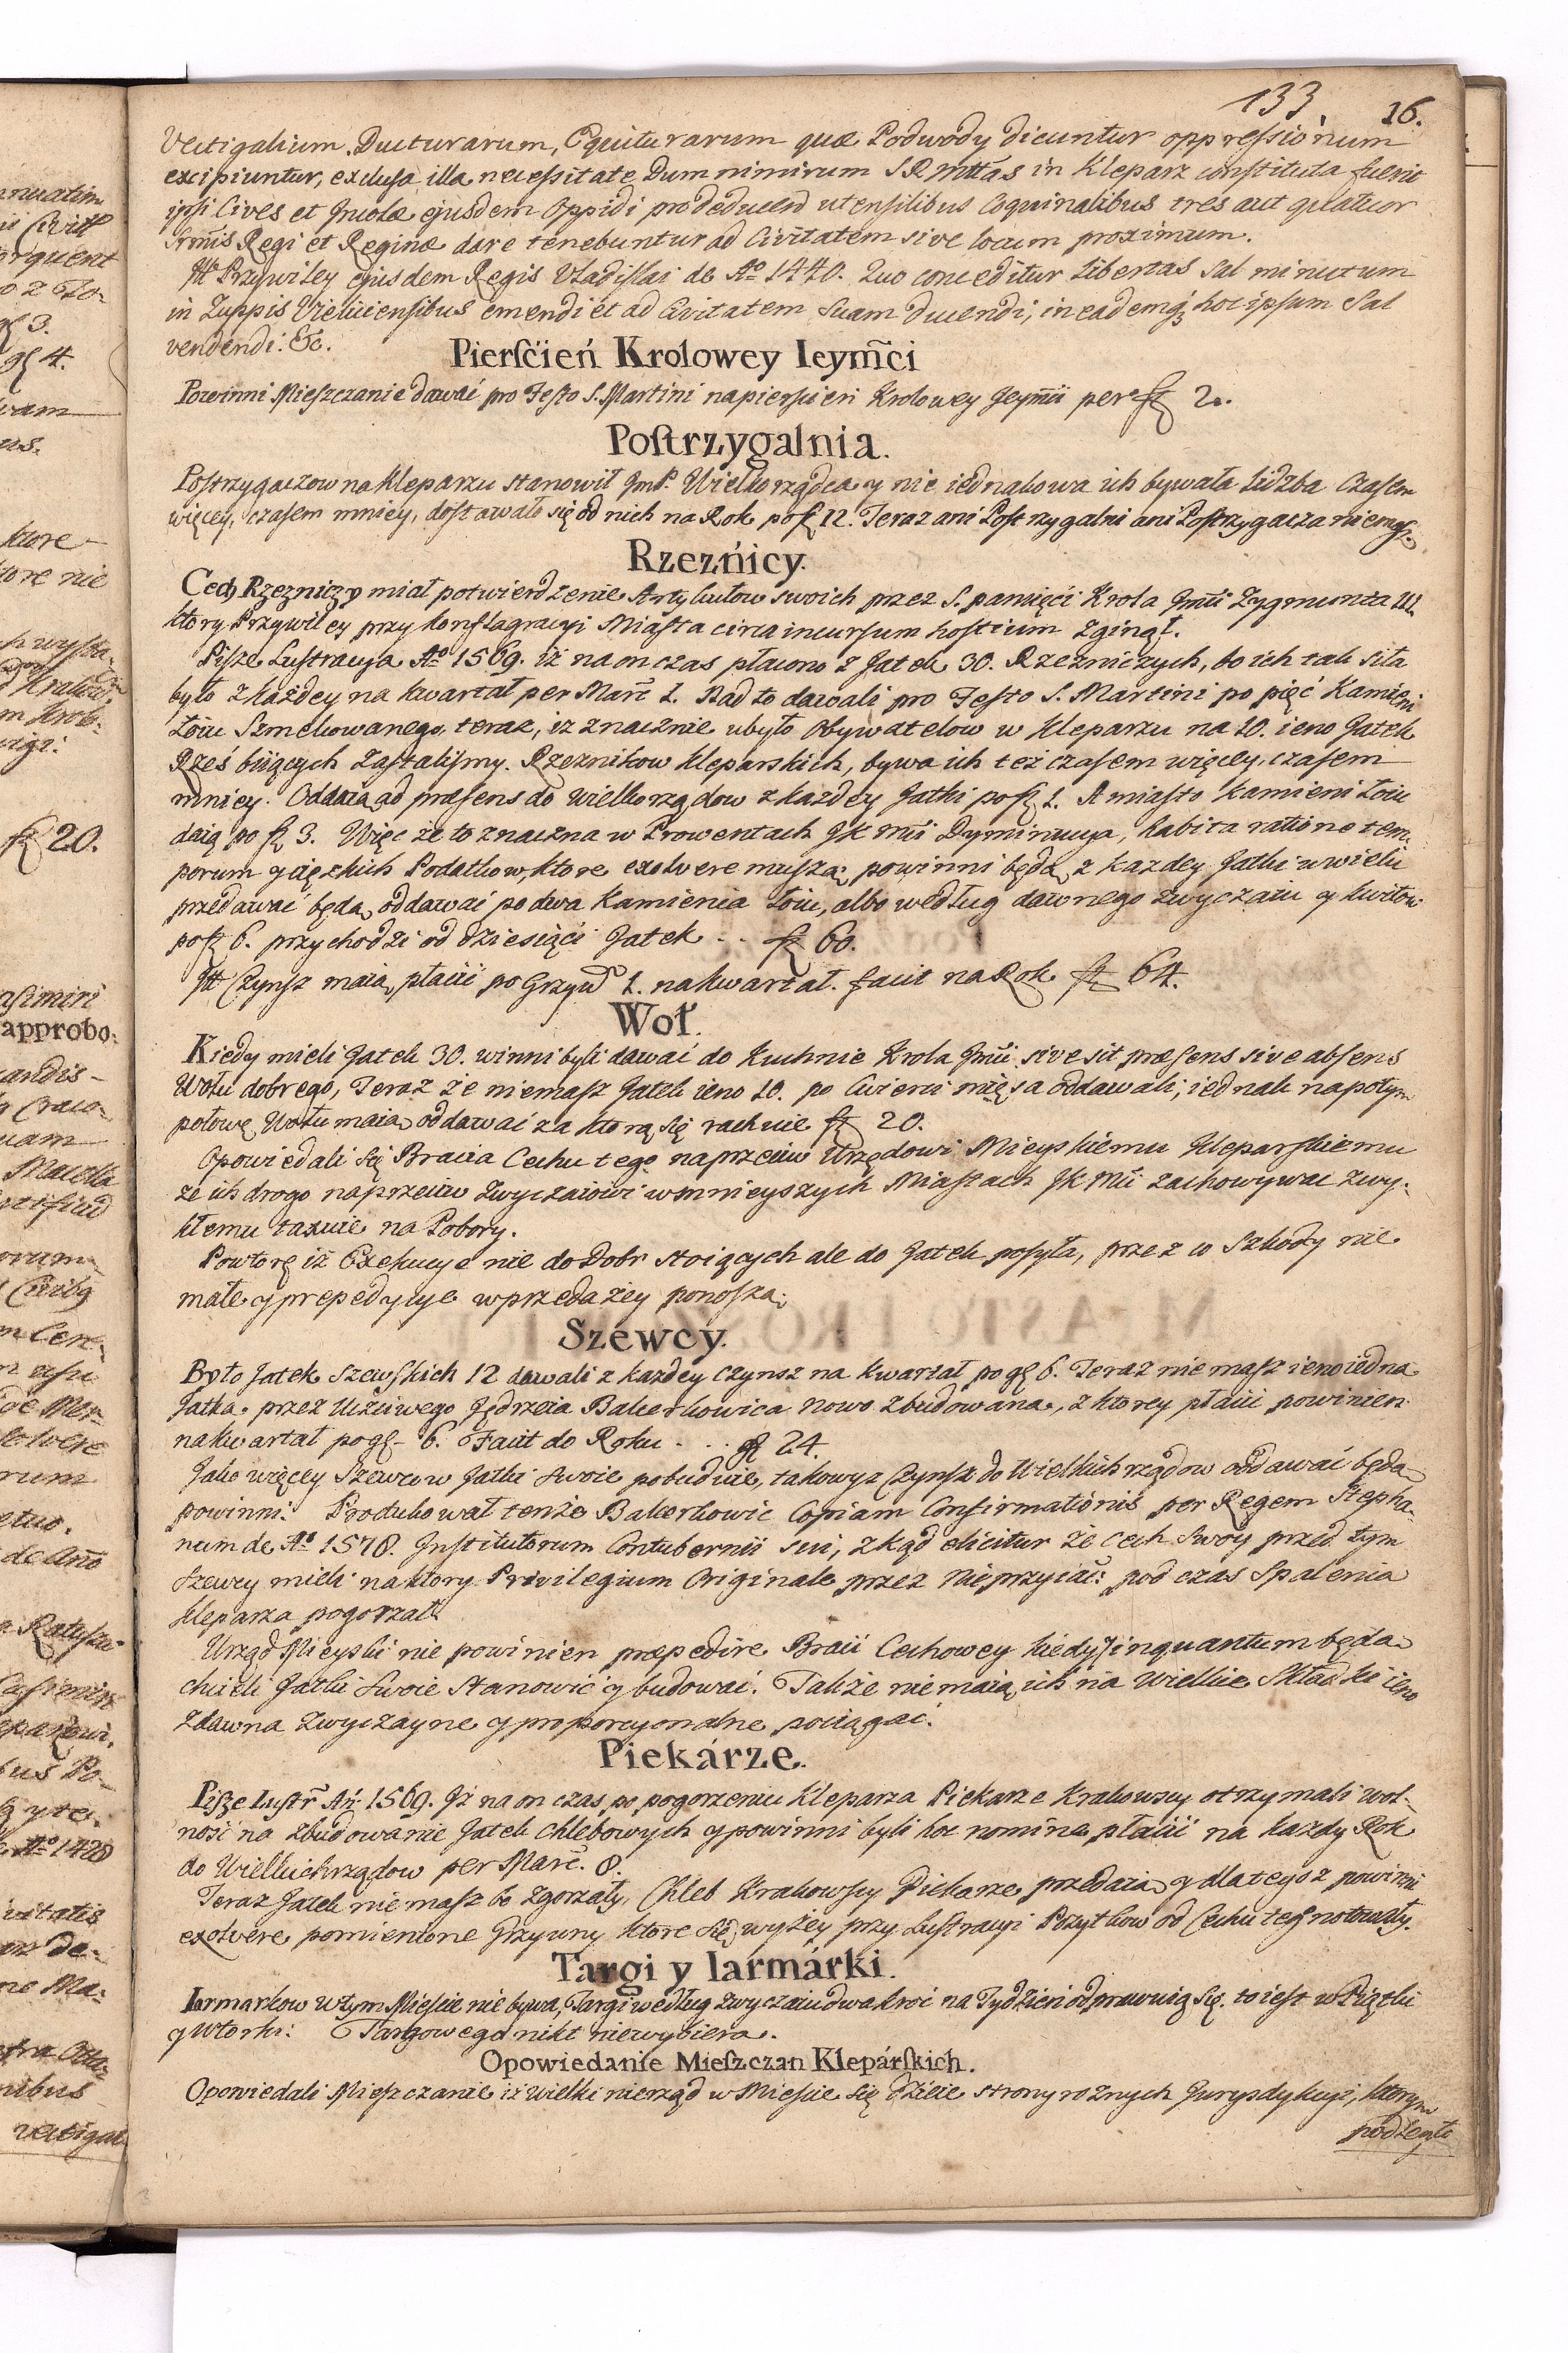 133 16.
Vectigalium, Ducturarum, Equiturarum quæ Podwody dicuntur oppressionum
excipiuntur, exclusa illa necessitate Dum nimirum S R Mttas in Kleparz constituta fuerit
ipsi Cives et Incolæ ejusdem Oppidi pro deducend utensilibus Coquinalibus tres aut quatuor
Srmis Regi et Reginæ dare tenebuntur ad Civitatem sive locum proximum.
Itt Przywiley ejusdem Regis Vladislai de Aō 1440. Quo conceditur Libertas Sal minutum
in Zuppis Vieliciensibus emendi et ad Civitatem Suam Ducendi, in eademq; hoc ipsum Sal
vendendi. &c.
Pierścień Krolowey Ieym̃ci
Powinni Mieszczanie dawać pro Festo S. Martini na pierścień Krolowey Jeymci per fl 2.
Postrzygalnia.
Postrzygaczow na Kleparzu stanowił JmP. Wielkorządca y nie iednakowa ich bywała Liczba Czasem
więcey, czasem mniey, dostawało się od nich na Rok po fl 12. Teraz ani Postrzygalni ani Postrzygacza niemasz.
Rzeźnicy.
Cech Rzezniczy miał potwierdzenie Artykułow swoich przez S. pamięci Krola Jmci Zygmunta III.
ktory Przywiley przy konflagracyi Miasta circa incursum hostium zginął.
Pisze Lustracya Aō 1569. iż na on czas płacono z Jatek 30. Rzezniczych, bo ich tak siła
było z każdey na kwartał per Marc̃ 1. Nad to dawali pro Festo S. Martini po pięć Kamieni
Łoiu Szmelcowanego, teraz, iz znacznie ubyło Obywatelow w Kleparzu na 10. ieno Jatek
Rzeź biiących Zastalismy. Rzeznikow Kleparskich, bywa ich też czasem więcey, czasem
mniey. Oddaią ad præsens do Wielkorządow z każdey Jatki po fl 1. A miasto Kamieni Łoiu
daią po fl 3. Więc że to znaczna w Prowentach JK Mci Dyminucya, habita ratione tem-
porum y cięzkich Podatkow, ktore exolvere muszą, powinni będą z kazdey Jatki w wielu
przedawać będą, oddawać po dwa Kamienia Łoiu, albo według dawnego zwyczaiu y kwitow
po fl 6. przychodzi od dziesiąci Jatek .. fl 60.
Itt Czynsz maią płacić po Grzyw̃ 1. na kwartał. facit na Rok fl 64.
Woł.
Kiedy mieli Jatek 30. winni byli dawać do Kuchnie Krola Jmci sive sit præsens sive absens
Wołu dobrego, Teraz że niemasz Jatek ieno 10. po Cwierci mięsa oddawali, iednak napotym
połowę Wołu maią oddawać za ktorą się rachuie fl 20.
Opowiedali się Bracia Cechu tego naprzeciw Urzędowi Mieyskiemu Kleparskiemu
że ich drogo naprzeciw zwyczaiowi w mnieyszych Miastach JK Mci zachowywac zwy-
kłemu taxuie na Pobory.
Powtorę iż Exekucye nie do Dobr stoiących ale do Jatek posyła, przez co Szkody nie
małe y prepedycye w przedażey ponoszą.
Szewcy.
Było Jatek Szewskich 12 dawali z każdey czynsz na kwartał po gl 6. Teraz nie masz ieno iedna
Jatka przez Uczciwego Jędrzeia Bakerkowica nowo zbudowana, z ktorey płacić powinien
na kwartał po gl 6. Facit do Roku . . . gl 24.
Jako więcey Szewcow Jatki swoie pobuduie, takowyz Czynsz do Wielkich rządow oddawać będą
powinni. Produkował tenże Bakerkowic Copiam Confirmationis per Regem Stepha-
num de Aō 1578. Institutorum Contubernii sui, zkąd elicitur że Cech Swoy przed tym
Szewcy mieli na ktory Privilegium Originale przez Nieprzyiac: pod czas Spalenia
Kleparza pogorzał.
Urząd Mieyski nie powinien præpedire Braci Cechowey kiedy inquantum będą
chcieli Jatki swoie stanowić y budować. Także nie maią ich na Wielkie Składki ieno
zdawna zwyczayne y proporcyonalne pociągać.
Piekárze.
Pisze Lustr̃ Añ 1569. Iż na on czas po pogorzeniu Kleparza Piekarze Krakowscy otrzymali wol-
ność na zbudowanie Jatek Chlebowych y powinni byli hoc nomine płacić na każdy Rok
do Wielkichrządow per Marc̃. 8.
Teraz Jatek niemasz bo zgorzały, Chleb Krakowscy Piekarze przedaią y dlategoż powinni
exolvere pomienione Grzywny ktore się wyżey przy Lustracyi Pożytkow od Cechu teg notowały.
Targi y Iarmárki.
Iarmarkow w tym Mieście nie bywa, Targi według zwyczaiu dwakroć na Tydzień odprawuią się. to iest w Piątki
y Wtorki. Targowego nikt niewybiera.
Opowiedanie Mieszczan Klepárskich.
Opowiedali Mieszczanie iż wielki nierząd w Mieście się dzieie strony roznych Jurysdykcyi, ktorym
podległo